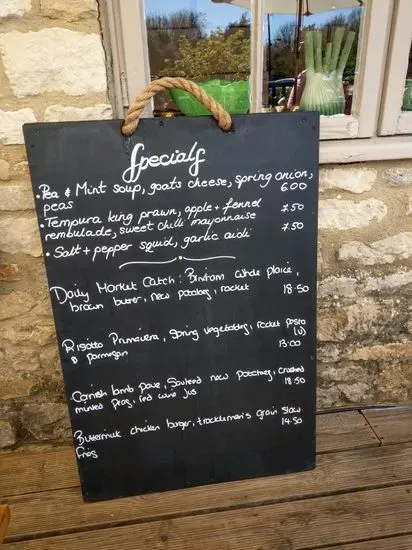 Specials
• Pea & Mint soup, goats cheese, spring onion,
peas 6.00
• Tempura king prawn, apple + fennel
rembulade, sweet chilli mayonnaise 7.50
• Salt + pepper squid, garlic aioli 7.50
Daily Market Catch: Brixham whole plaice,
brown butter, new potatoes, rocket 18.50
Risotto Primavera, Spring vegetables, rocket pesto
& parmesan (v)
13.00
Cornish lamb pave, Sauteed new potatoes, crushed
minted peas, red wine jus 18.50
Buttermilk chicken burger, trucklemen's grain slaw
fries 14.50